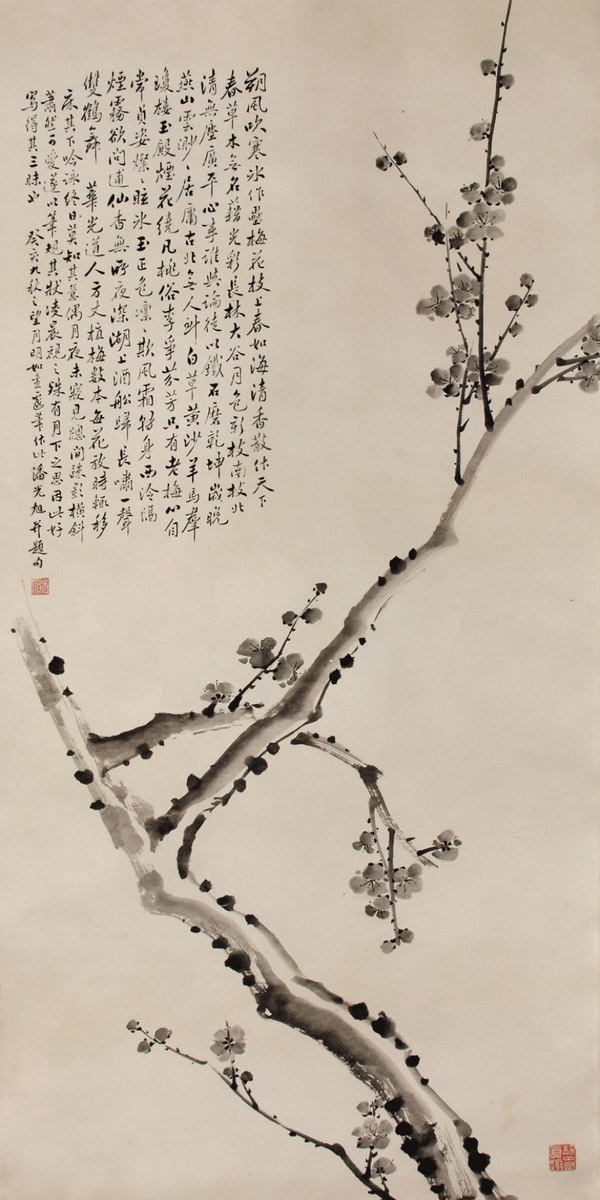 朔風吹寒冰作壘梅花枝上春如海清香散作天下
春草木無名藉光彩長林大谷月色新枝南枝北
清無塵廣平心事誰與論徒以鐵石磨乾坤歲晚
燕山雲渺々居庸古北無人到白草黃沙羊馬群
瓊樓玉殿煙花繞凡桃俗李爭芬芳只有老梅心自
常貞姿燦々眩冰玉正色凜々欺風霜轉身西泠隔
煙霧欲問逋仙杳無所夜深湖上酒船歸長嘯一聲
雙鶴舞 華光道人方丈植梅數本每花放時輒移
床其下吟詠終日莫知其意偶月夜未寢見窗間疎影橫斜
蕭然可愛遂以筆規其狀凌晨視之殊有月下之思因此好
寫得其三昧也 癸亥九秋之望月明如晝 華作此潘光旭并題句